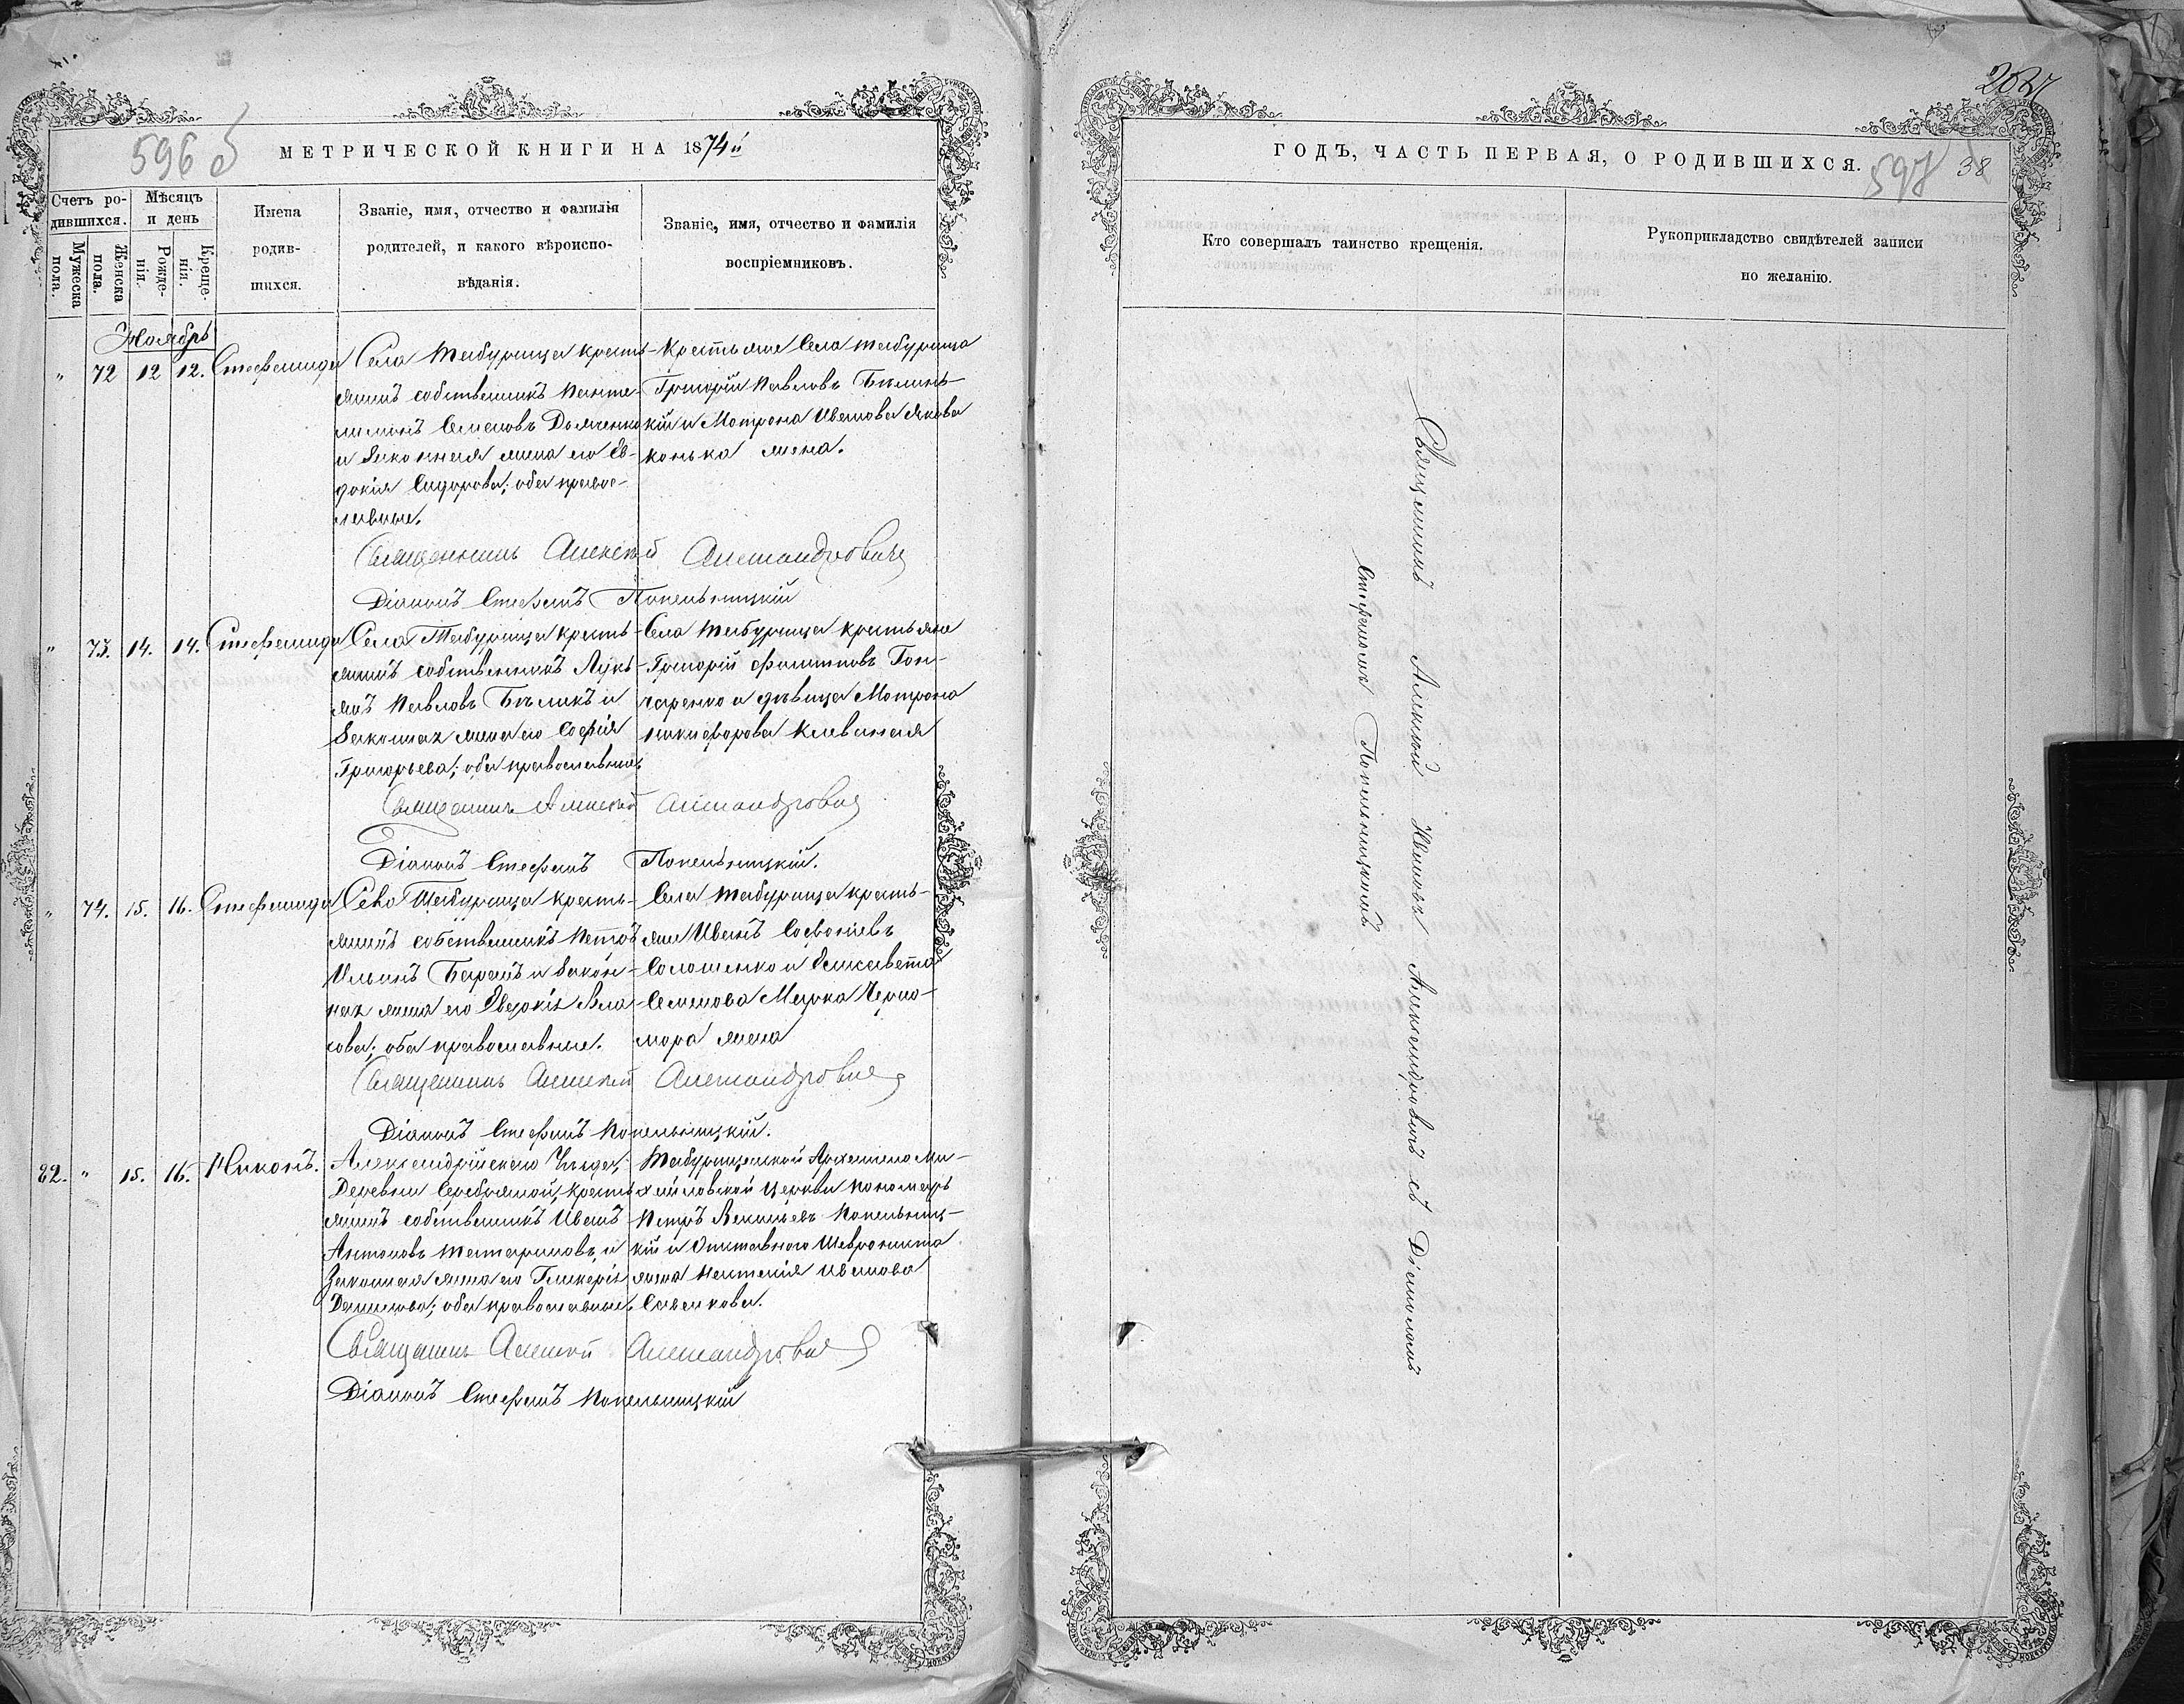 596 б
МЕТРИЧЕСКОЙ КНИГИ НА 1874й
Счетъ ро-
дившихся.
Мѣсяцъ
и день
Мужеска
пола.
Женска
пола.
Рожде-
нія.
Креще-
нія.
Имена
родив-
шихся.
Званіе, имя, отчество и фамилія
родителей, и какого вѣроиспо-
вѣданія.
Званіе, имя, отчество и фамилія
воспріемниковъ.
Ноябрь
" 72 12 12. Стефанида
Села Табурища кресть-
янинъ собственникъ Панте-
лимонъ Семеновъ Дьяченко
и законная жена его Ев-
докія Сидорова; оба право-
славные.
Крестьяне Села Табурища
Григорій Павловъ Бѣлинь-
кій и Мотрона Иванова Якова
конька жена.
Священникъ Алексѣй Александровичъ
Діаконъ Стефанъ Попельницкій
" 73. 14. 14. Стефанида
Села Табурища кресть-
янинъ собственникъ Лукь-
янъ Павловъ Бѣликъ и
Законная жена его Софія
Григорьева; оба православные
Села Табурища крестьяне
Григорій Филиповъ Гон-
чаренко и дѣвица Мотрона
Никифорова
Священникъ Алексѣй Александровичъ
Діаконъ Стефанъ Попельницкій.
" 74. 15. 16. Стефанида
Села Табурища кресть-
янинъ собственникъ Петръ
Ильинъ Баранъ и закон-
ная жена его Евдокія Вла-
сова; оба православные.
Села Табурища кресть-
яне Иванъ Софоніевъ
Соломенко и Елисавета
Семенова Марка Черно-
мора жена
Священникъ Алексѣй Александровичъ
Діаконъ Стефанъ Попельницкій.
82. " 15. 16. Никонъ.
Александрійскаго Уѣзда,
Деревни Серебряной, кресть-
янинъ собственникъ Иванъ
Антоновъ Татариновъ, и
Законная жена его Гликерія
Данилова; оба православные.
Табурищанской Архангело Ми-
хайловской Церкви пономарь
Петръ Васильевъ Попельниц-
кій и Отставного
жена Пелагія Иванова
Савенкова.
Священникъ Алексѣй Александровичъ
Діаконъ Стефанъ Попельницкій
597
38
ГОДЪ, ЧАСТЬ ПЕРВАЯ, О РОДИВШИХСЯ.
Кто совершалъ таинство крещенія.
Рукоприкладство свидѣтелей записи
по желанію.
Священникъ Алексѣй Ивановъ Александровичъ съ Діакономъ
Стефаномъ Попельницкимъ